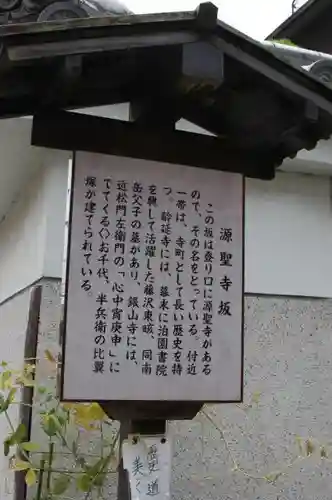 源聖寺坂
この坂は登り口に源聖寺がある
ので、その名をとっている。付近
一帯は、寺町として長い歴史を持
つ。齢延寺には、幕末に泊園書院
を興して活躍した藤沢東畡、同南
岳父子の墓があり、銀山寺には、
近松門左衛門の「心中宵庚申」に
でてくる〈お千代、半兵衛の比翼
塚が建てられている。
歴史
道